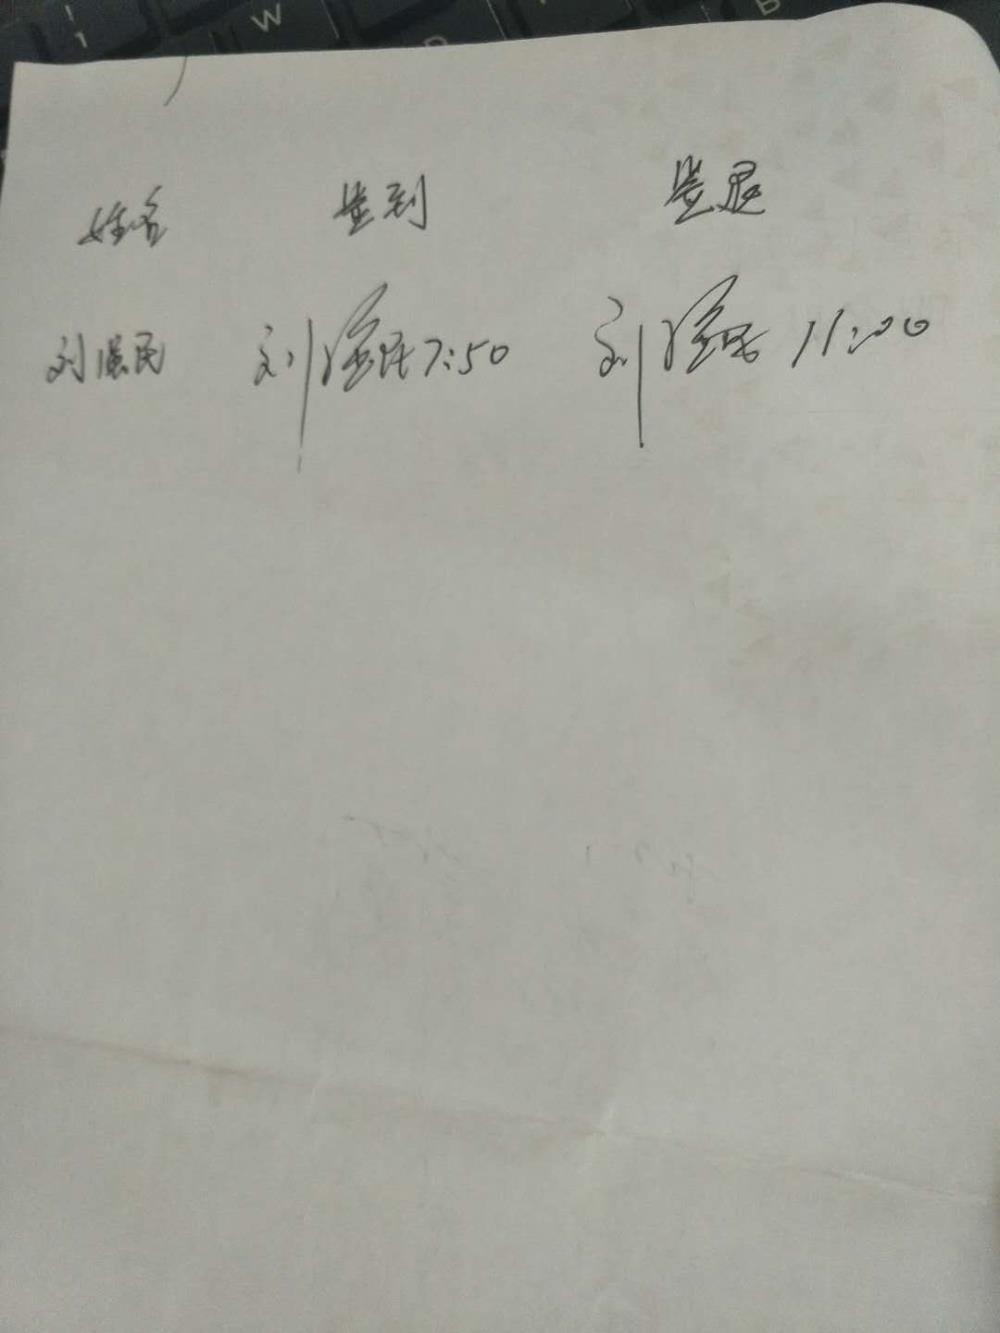 姓名 签到 签退
刘惠民 刘惠民7:50 刘惠民 11:00